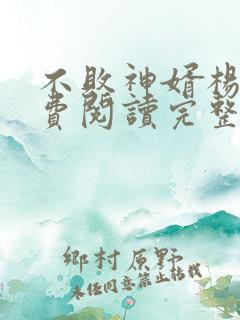 不敗神婿楊
費閱讀完整
鄉村原野
未经同意禁止转载